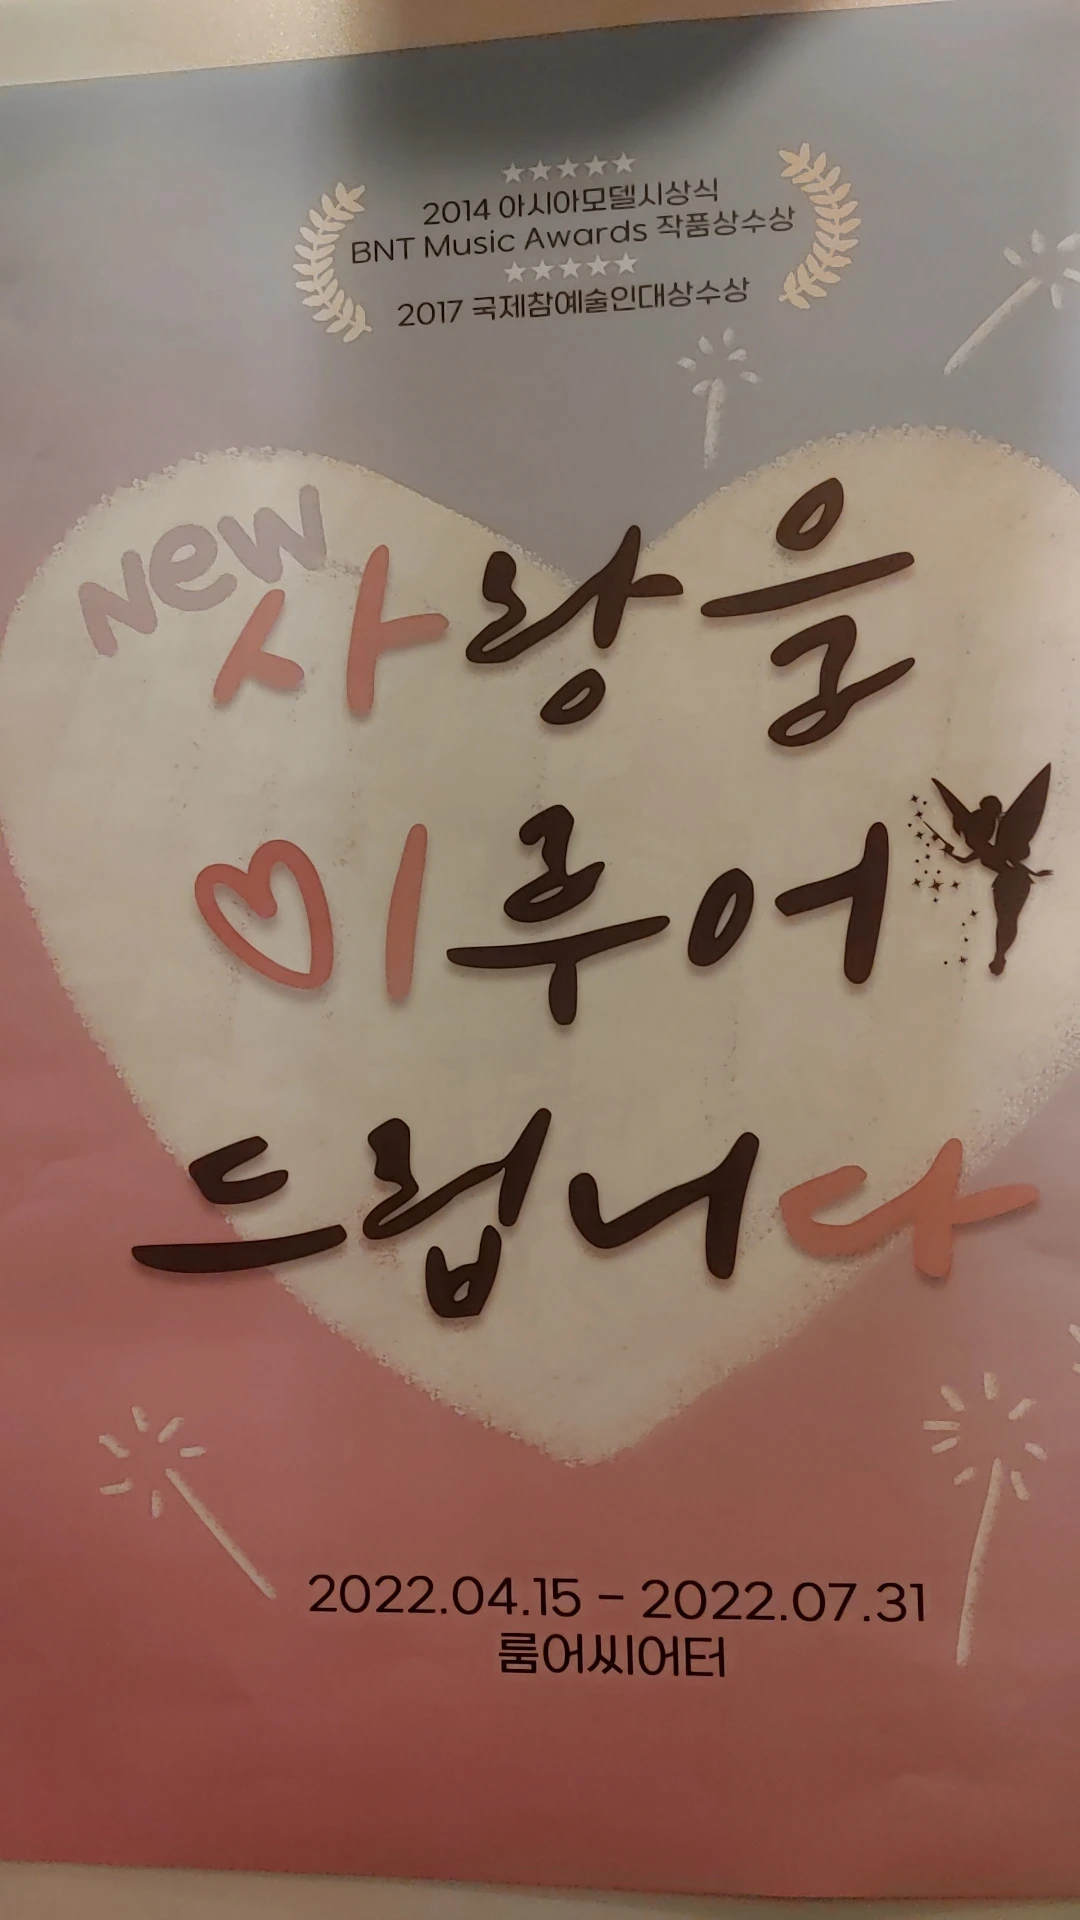 2014 아시아모델시상식
BNT Music Awards 작품상수상
2017 국제참예술인대상수상
New
사랑을
이루어
드립니다
2022.04.15 - 2022.07.31
룸어씨어터